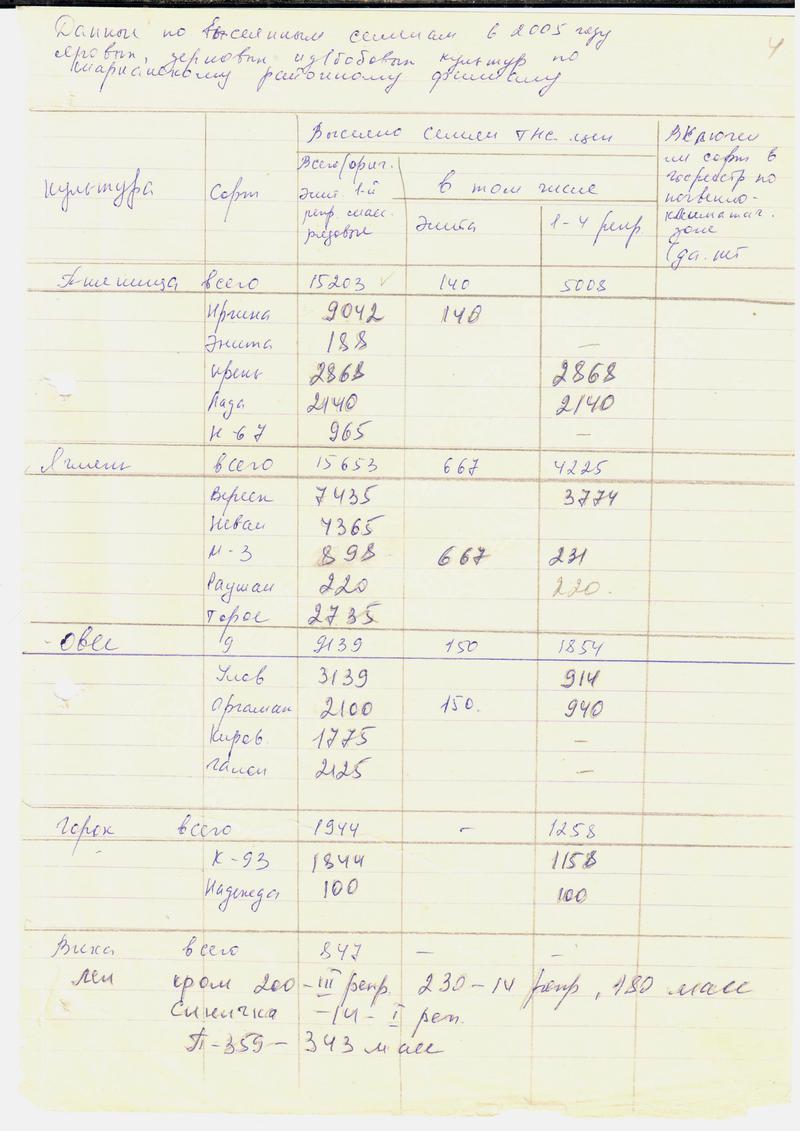 4
Данные по высеянным семенам в 2005 году
яровых, зерновых и з/бобовых культур по
шарканскому районному филиалу
Культура Сорт Высеяно семян тыс. цен
Всего (ориг. элит. 1-й репр. масс. рядовые
в том числе
Элита 1-4 репр
Включен ли сорт в госреестр по почвенно-климатич. зоне (да. нет
Пшеница всего 15203 140 5008
Иргина 9042 140
Энита 188 —
Ирень 2868 2868
Лада 2140 2140
К-67 965 —
Ячмень всего 15653 667 4225
Вереск 7435 3774
Неван 4365
М-3 898 667 231
Раушан 220 220.
Торос 2735
Овес 9 9139 150 1854
Улов 3139 914
Аргамак 2100 150. 940
Киров. 1775 —
Галоп 2125 —
Горох всего 1944 - 1258
К-93 1844 1158
Надежда 100 100
Вика всего 847 — —
Лен кром 200-III репр. 230-IV репр, 180 масс
Синичка -14- I реп.
П-359-343 масс